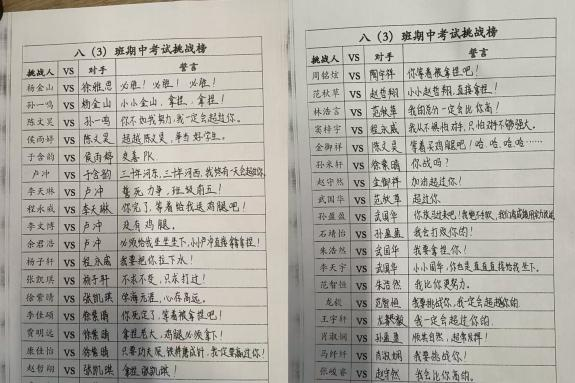 八（3）班期中考试挑战榜
挑战人 VS 对手 誓言
杨金山 VS 徐雅思 必胜！必胜！必胜！
孙一鸣 VS 杨金山 小小金山，拿捏，拿捏！
陈文昊 VS 孙一鸣 你不如我努力，我一定会超过你。
侯雨婷 VS 陈文昊 超越陈文昊，争当好学生。
于含韵 VS 侯雨婷 友善PK.
卢冲 VS 于含韵 三十年河东，三十年河西，我终有一天会超过你
李天琳 VS 卢冲 誓死力争，班级前五！
程永威 VS 李天琳 你完了，等着给我送鸡腿吧！
李文博 VS 卢冲 没有鸡腿。
余君浩 VS 卢冲 小小卢冲直接拿捏！
杨子轩 VS 程永威 我要把你拉下水！
张凯琪 VS 杨子轩 不求不变，只求打过！
徐紫晴 VS 张凯琪 学海无涯，心存高远。
李佳硕 VS 徐紫晴 你死定了，等着被拿捏吧！
贾明远 VS 徐紫晴 拿捏老大，鸡腿必须拿下！
康佳怡 VS 徐紫晴 只要功夫深，铁杵磨成针，我一定要赢过你！
赵哲翔 VS 张凯琪 拿捏张凯琪！
八（3）班期中考试挑战榜
挑战人 VS 对手 誓言
周铭炫 VS 陶宇祥 你等着被拿捏吧！
范秋草 VS 赵哲翔 小小赵哲翔，直接拿捏！
林浩言 VS 范秋草 我的总分一定会比你高！
窦梓宇 VS 程永威 我从不惧怕对手，只怕对手不够强大。
金御祥 VS 陈文昊 等着买鸡腿吧！哈，哈，哈……
孙来轩 VS 徐紫晴 你战吗？
赵守然 VS 金御祥 加油超过你！
武国华 VS 范秋草 超过你
孙盈盈 VS 武国华
石靖怡 VS 孙盈盈 我会打败你的！
朱浩然 VS 武国华 我要拿捏你！
李天宇 VS 武国华 小小国华，你也是直直直接给我坐下。
范智恒 VS 朱浩然 我比你更努力。
龙毅 VS 范智恒 我要挑战你，我一定会超过你的
王宇轩 VS 我一定会超过你的.
肖淑娴 VS 孙盈盈 顺其自然，超常发挥！
马纤纤 VS 肖淑娴 我要挑战你！
张峻睿 VS 赵守然 我会打过你！